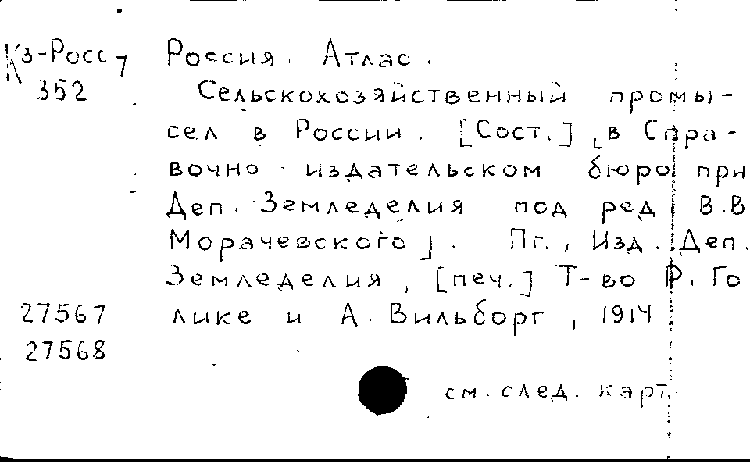 Кз-Росс 7 Россия. Атлас.
352 Сельскохозяйственный промы-
сел в России. [Сост.] [в Спра-
вочно-издательском бюро при
Деп. Земледелия под ред. В.В.
Морачевского]. Пг., Изд. Деп.
Земледелия, [печ.] Т-во Р. Го
27567 лике и А. Вильборг, 1914
27568
см. след. карт.